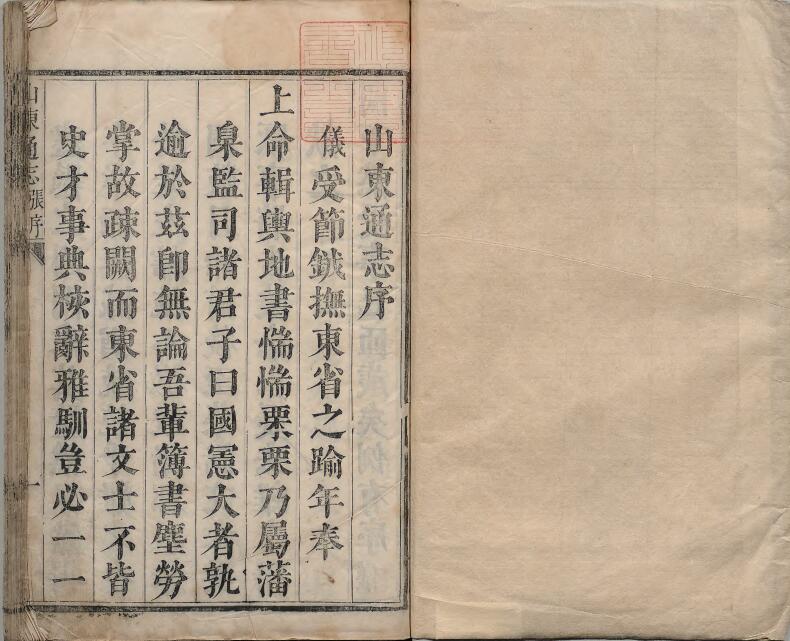 山東通志序
儀受節鉞撫東省之踰年奉
上命輯輿地書惴惴栗栗乃屬藩
臬監司諸君子曰國憲大者孰
逾於茲卽無論吾輩簿書塵勞
掌故疎闕而東省諸文士不皆
史才事典核辭雅馴豈必一一
山東通志張序
一